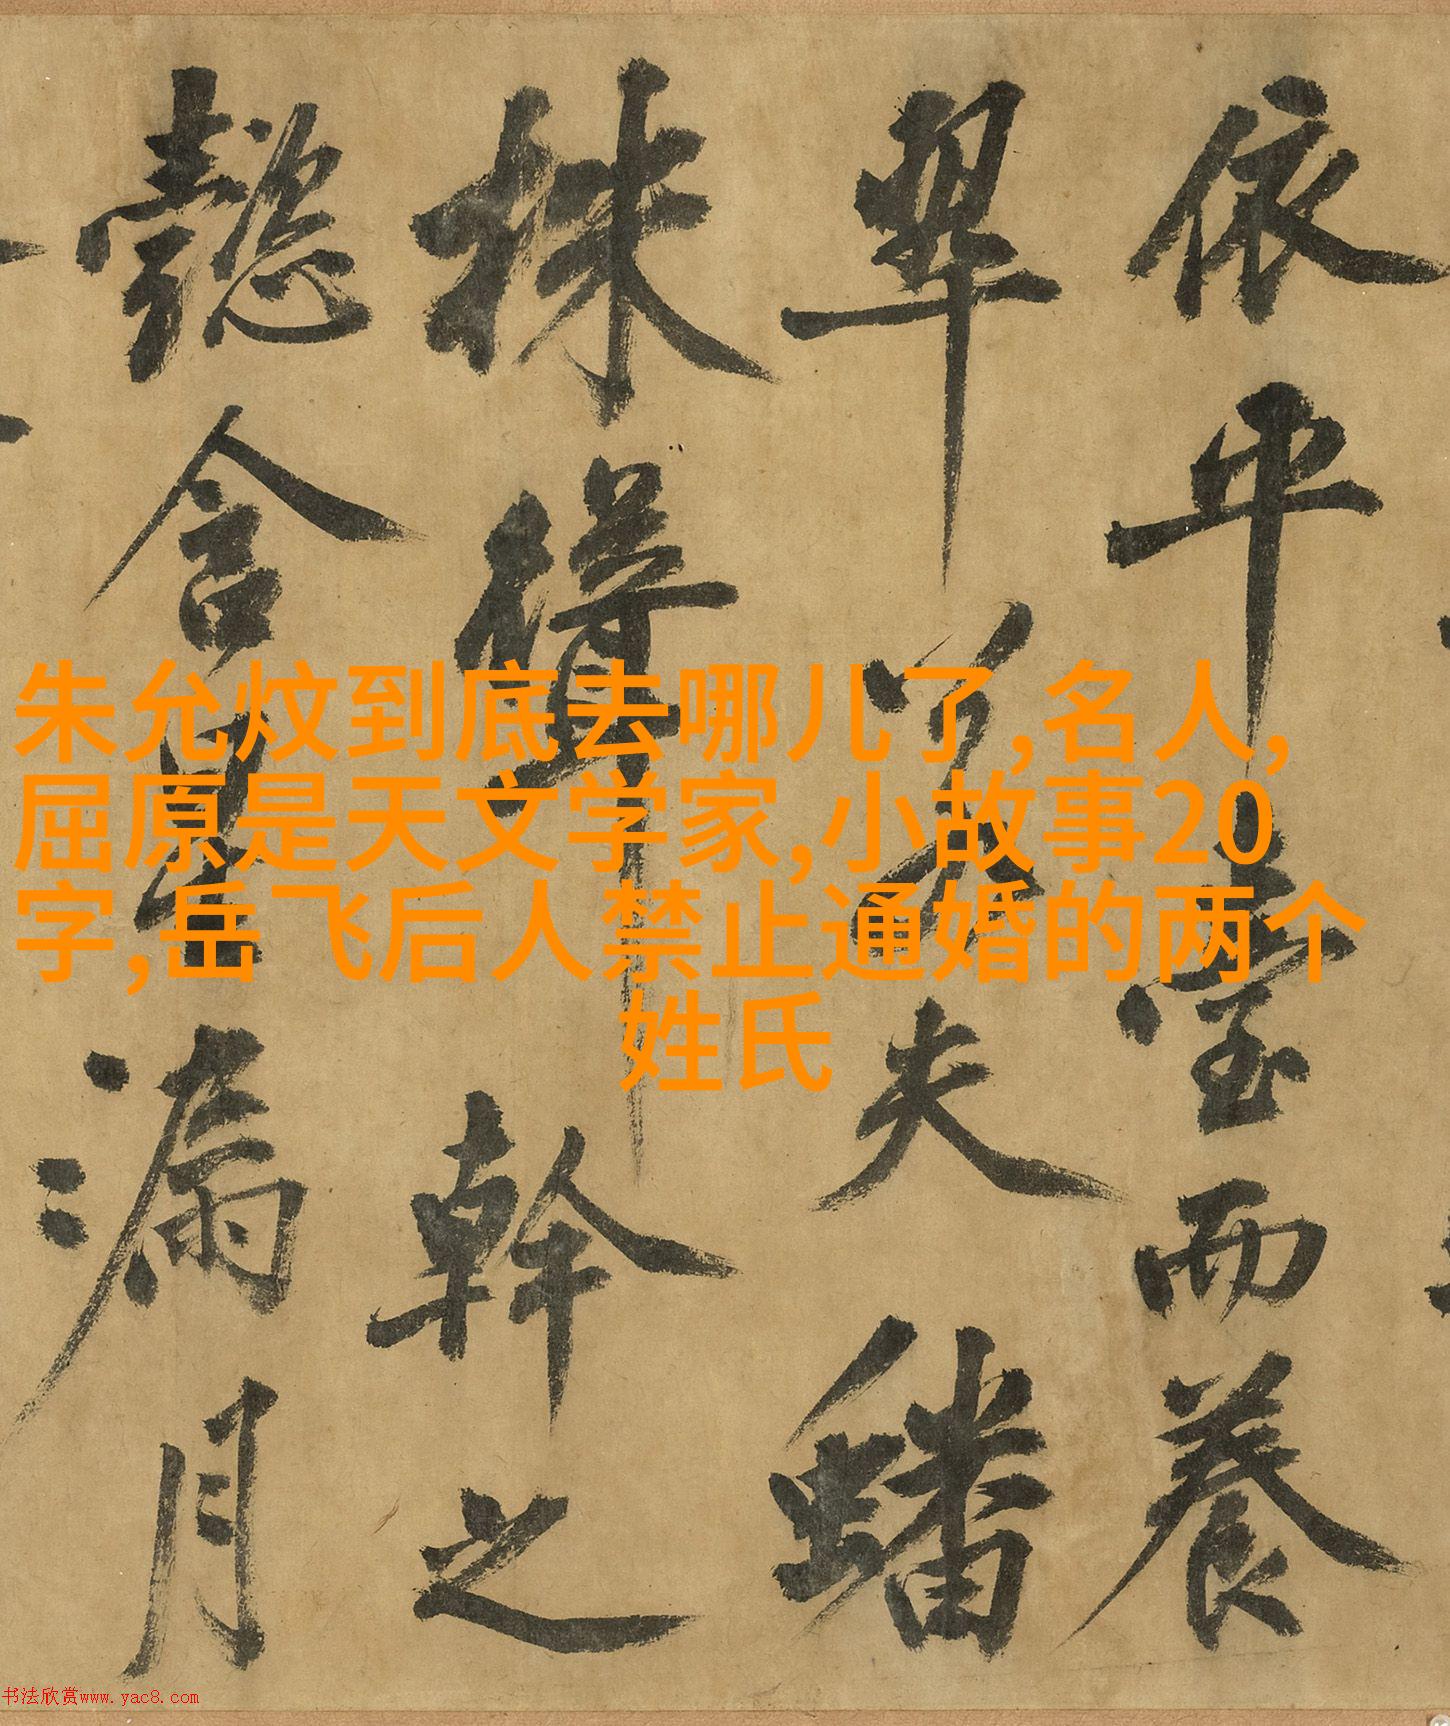 依平臺而養
翠若夫蟠
株聳幹之
懿含星漏月
朱允炆到底去哪儿了,名人,
屈原是天文学家,小故事20
字,岳飞后人禁止通婚的两个
姓氏
书法欣赏www.yac8.com